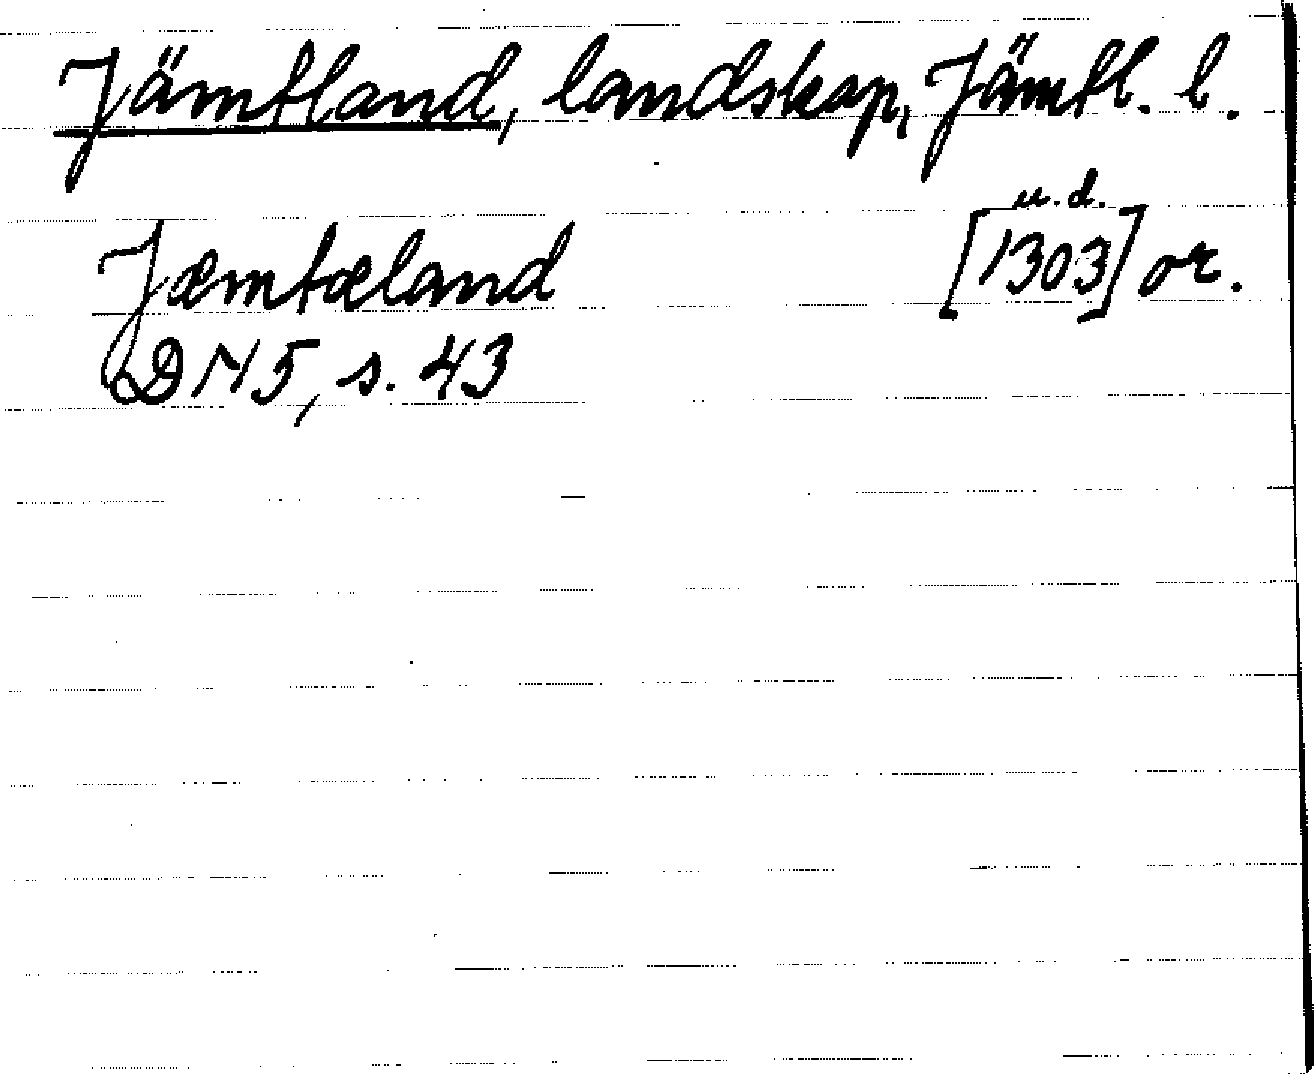 Jämtland, landskap, Jämtl. l.
u.d.
Jæmtæland [1303] or.
DN 5, s. 43